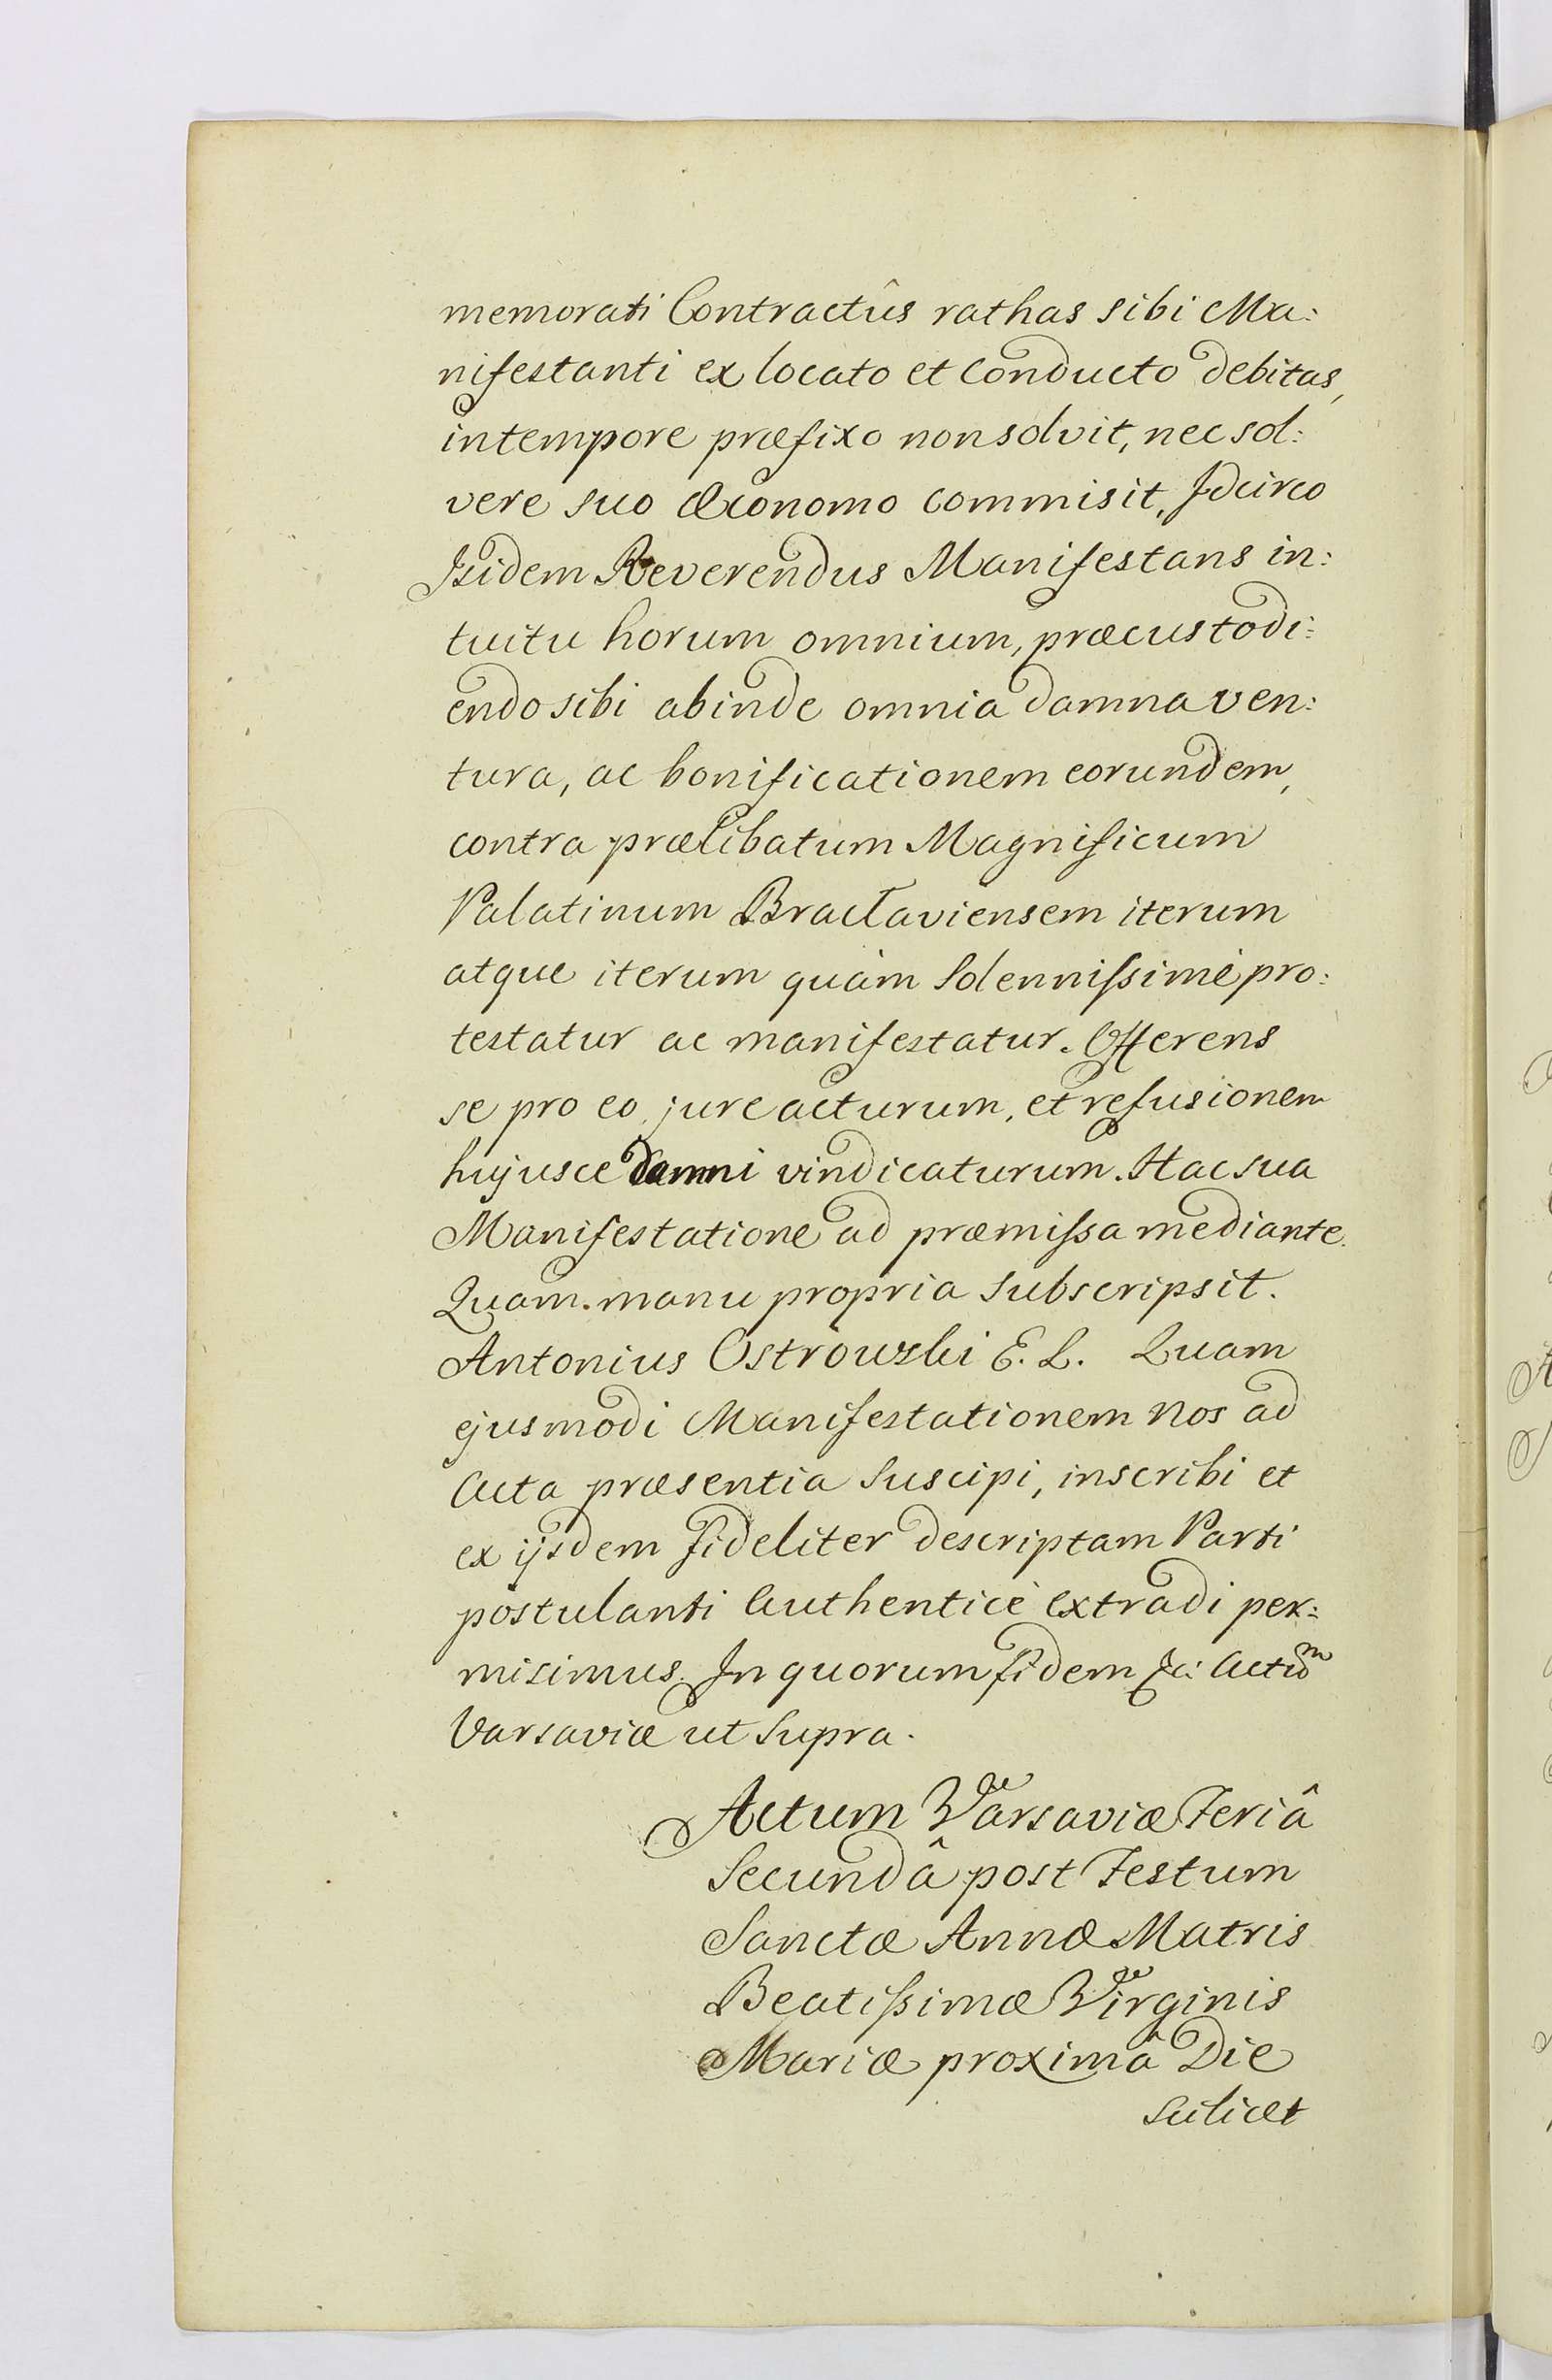 memorati Contractûs rathas sibi Ma:
nifestanti ex locato et conducto debitas,
in tempore præfixo non solvit, nec sol:
vere suo Œconomo commisit, Idcirco
Isidem Reverendus Manifestans in:
tuitu horum omnium, præcustodi:
endo sibi abinde omnia damna ven:
tura, ac bonificationem eorundem,
contra prælibatum Magnificum
Palatinum Braclaviensem iterum
atque iterum quàm Solennissimè pro:
testatur ac manifestatur. Offerens
se pro eo jure acturum, et refusionem
hujusce damni vindicaturum. Hac sua
Manifestatione ad præmissa mediante.
Quam manu propria subscripsit.
Antonius Ostrowski E. L. Quam
ejusmodi Manifestationem Nos ad
Acta præsentia Suscipi, inscribi et
ex ijsdem fideliter descriptam Parti
postulanti Authenticè extradi per:
misimus. In quorum fidem &c: Actum
Varsaviæ ut Supra.
Actum Varsaviæ Feriâ
Secundâ post Festum
Sanctæ Annæ Matris
Beatissimæ Virginis
Mariæ proximâ Die
scilicet